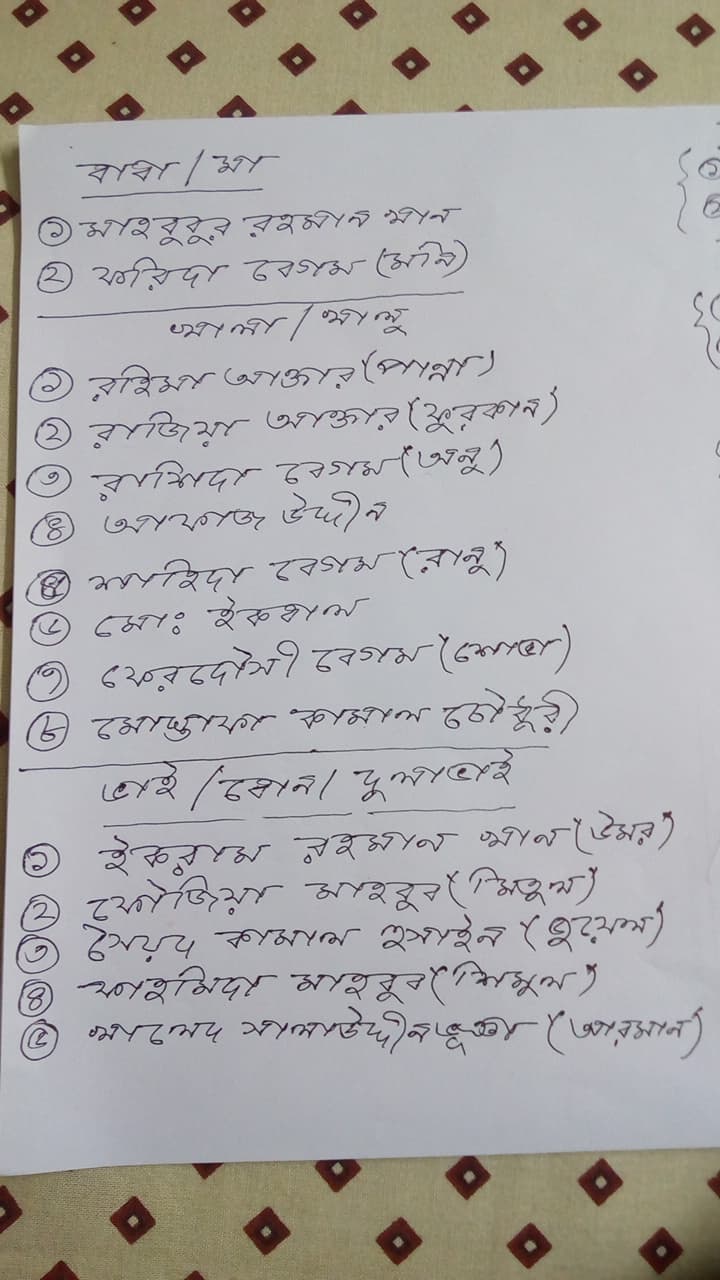 বাবা / মা
১ মাহবুবুর রহমান খান
২ ফরিদা বেগম (মনি)
খালা / খালু
১ রহিমা আক্তার (পান্না)
২ রাজিয়া আক্তার (ফুরকান)
৩ রাশিদা বেগম (অনু)
৪ আফাজ উদ্দীন
৫ শাহিদা বেগম (রানু)
৬ মোঃ ইকবাল
৭ ফেরদৌসী বেগম (শোভা)
৮ মোস্তাফা কামাল চৌধুরী
ভাই / বোন / দুলাভাই
১ ইকরাম রহমান খান (উমর)
২ ফৌজিয়া মাহবুব (মিতুল)
৩ সৈয়দ কামাল হুসাইন (জুয়েল)
৪ ফাহমিদা মাহবুব (শিমুল)
৫ খালেদ সালাউদ্দীন ভূঞা (আরমান)